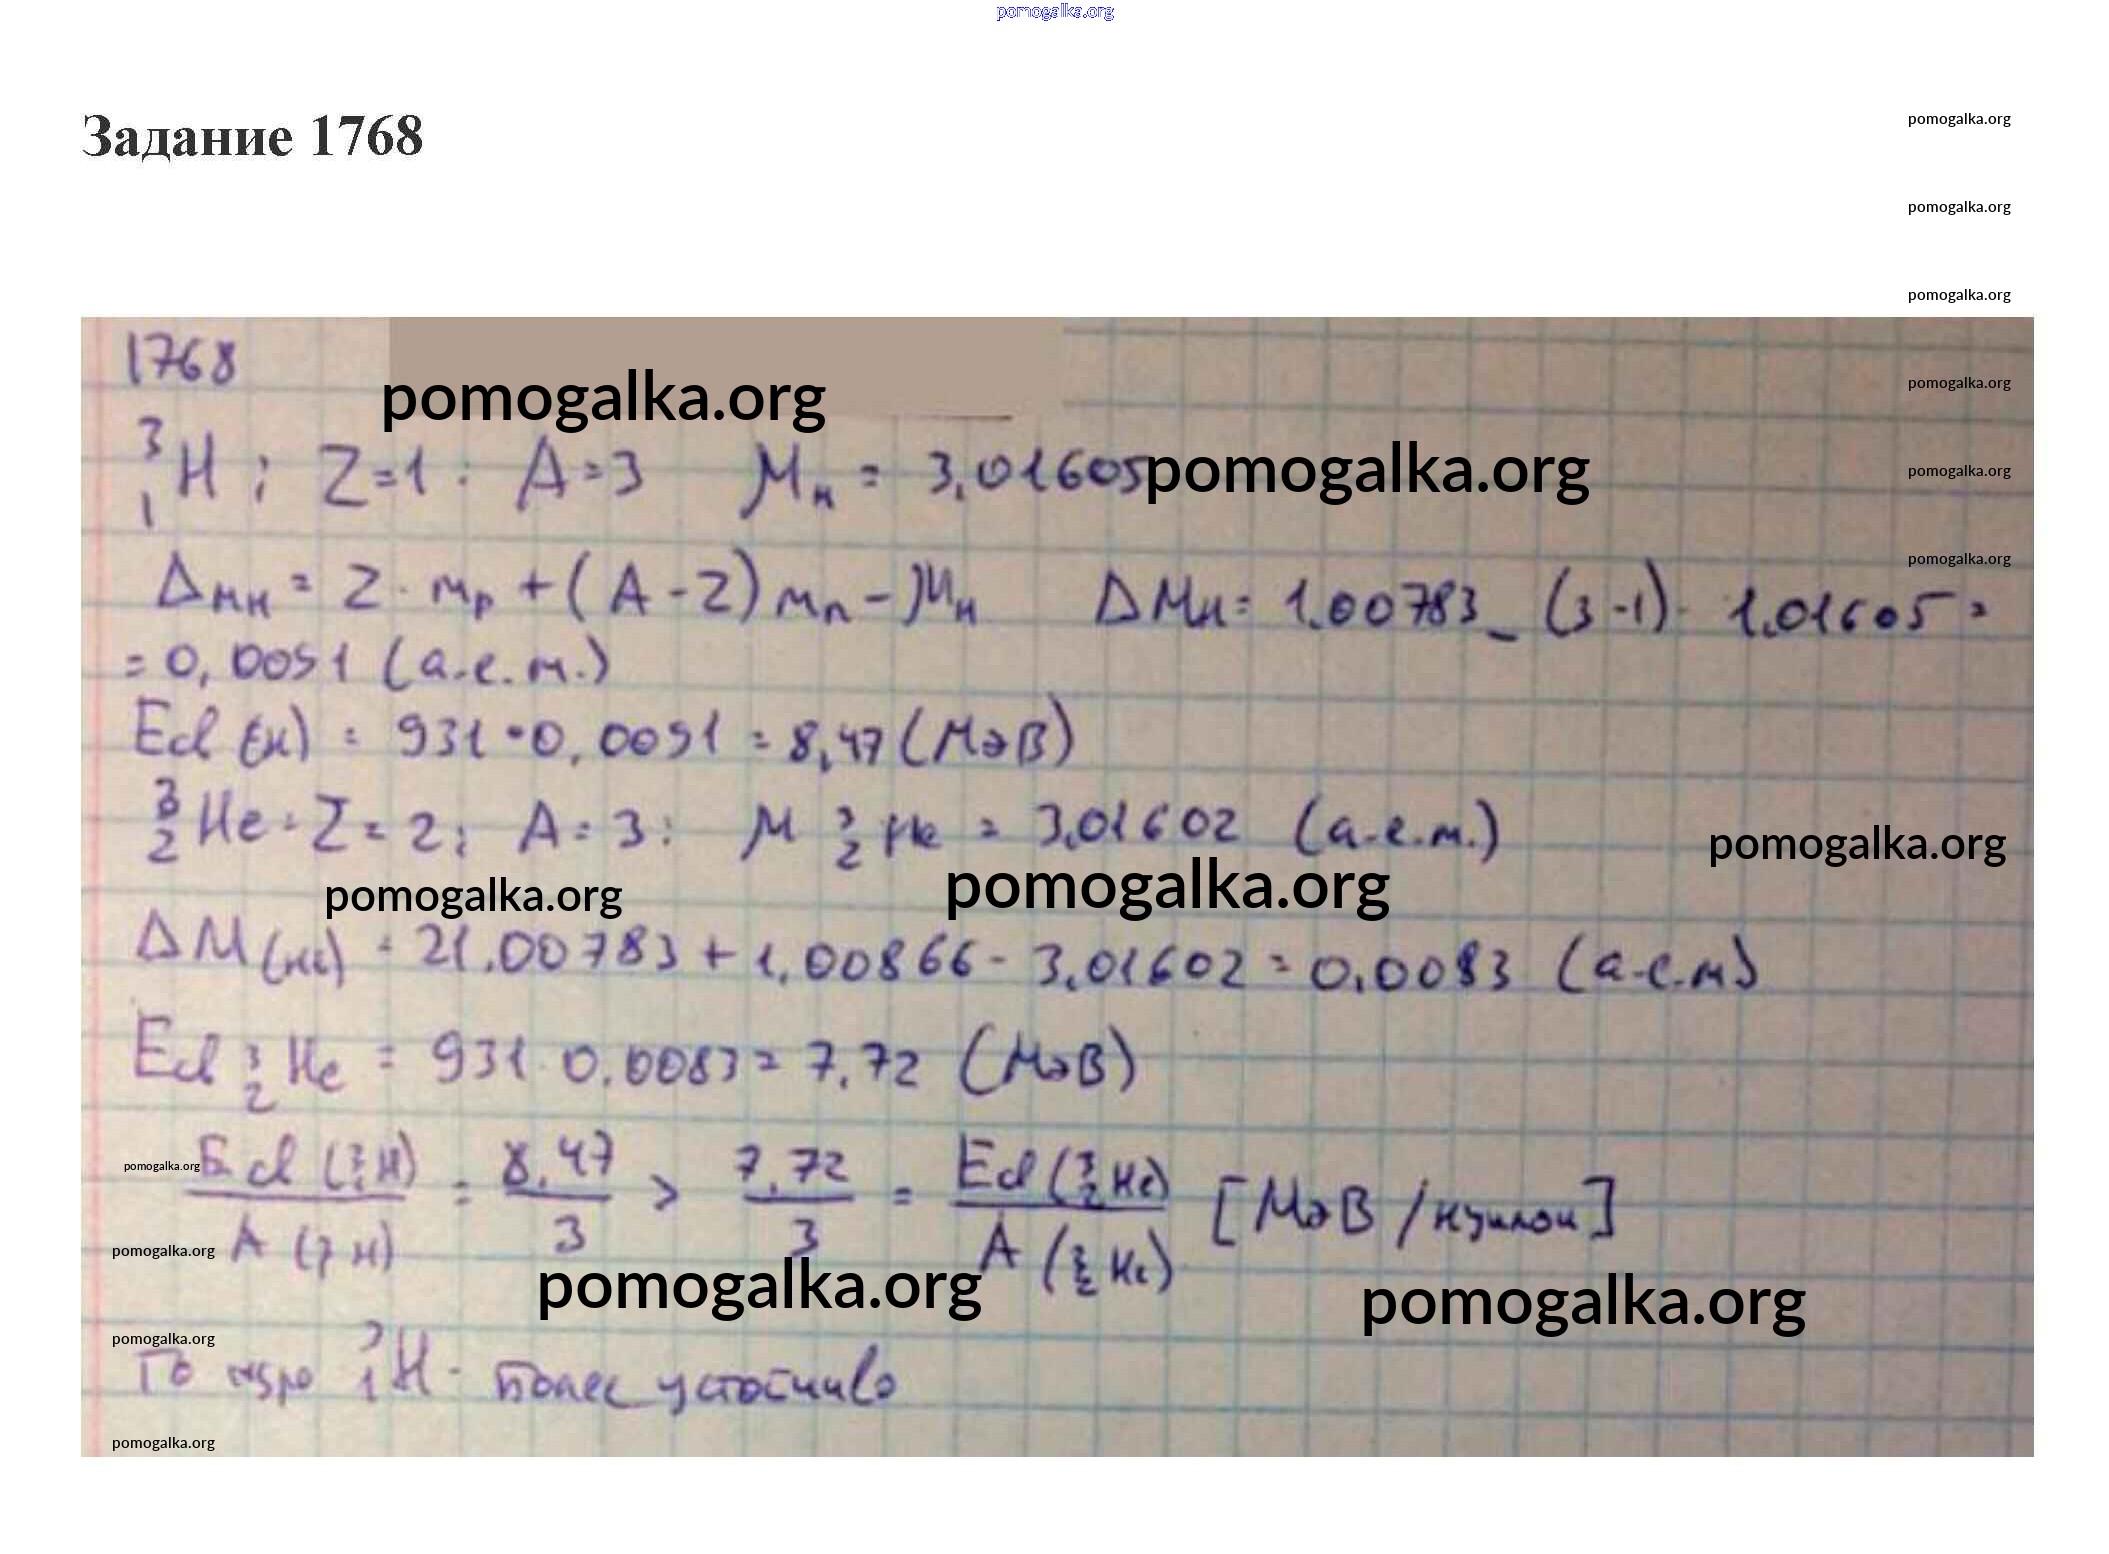 pomogalka.org
Задание 1768
pomogalka.org
pomogalka.org
pomogalka.org
1768
pomogalka.org
pomogalka.org
³₁H ; Z=1 ; A=3 Mн = 3,01605
pomogalka.org
pomogalka.org
pomogalka.org
Δмн = Z · mp + (A - Z) mn - Mн ΔMн = 1.00783_ (3-1) - 1.01605 =
= 0,0091 (а.е.м.)
Ecd (н) = 931 · 0,0091 = 8,47 (МэВ)
³₂He - Z = 2; A = 3; M ³₂He = 3,01602 (а.е.м.)
pomogalka.org
pomogalka.org
pomogalka.org
ΔM(He) = 21.00783 + 1,00866 - 3,01602 = 0,0083 (а.е.м)
Ecd ³₂He = 931 · 0,0083 = 7,72 (МэВ)
pomogalka.org
Ecd (³₁H) / A (³₁H) = 8,47 / 3 > 7,72 / 3 = Ecd (³₂He) / A (³₂He) [МэВ/нуклон]
pomogalka.org
pomogalka.org
pomogalka.org
pomogalka.org
То ядро ³₁H - более устойчиво
pomogalka.org